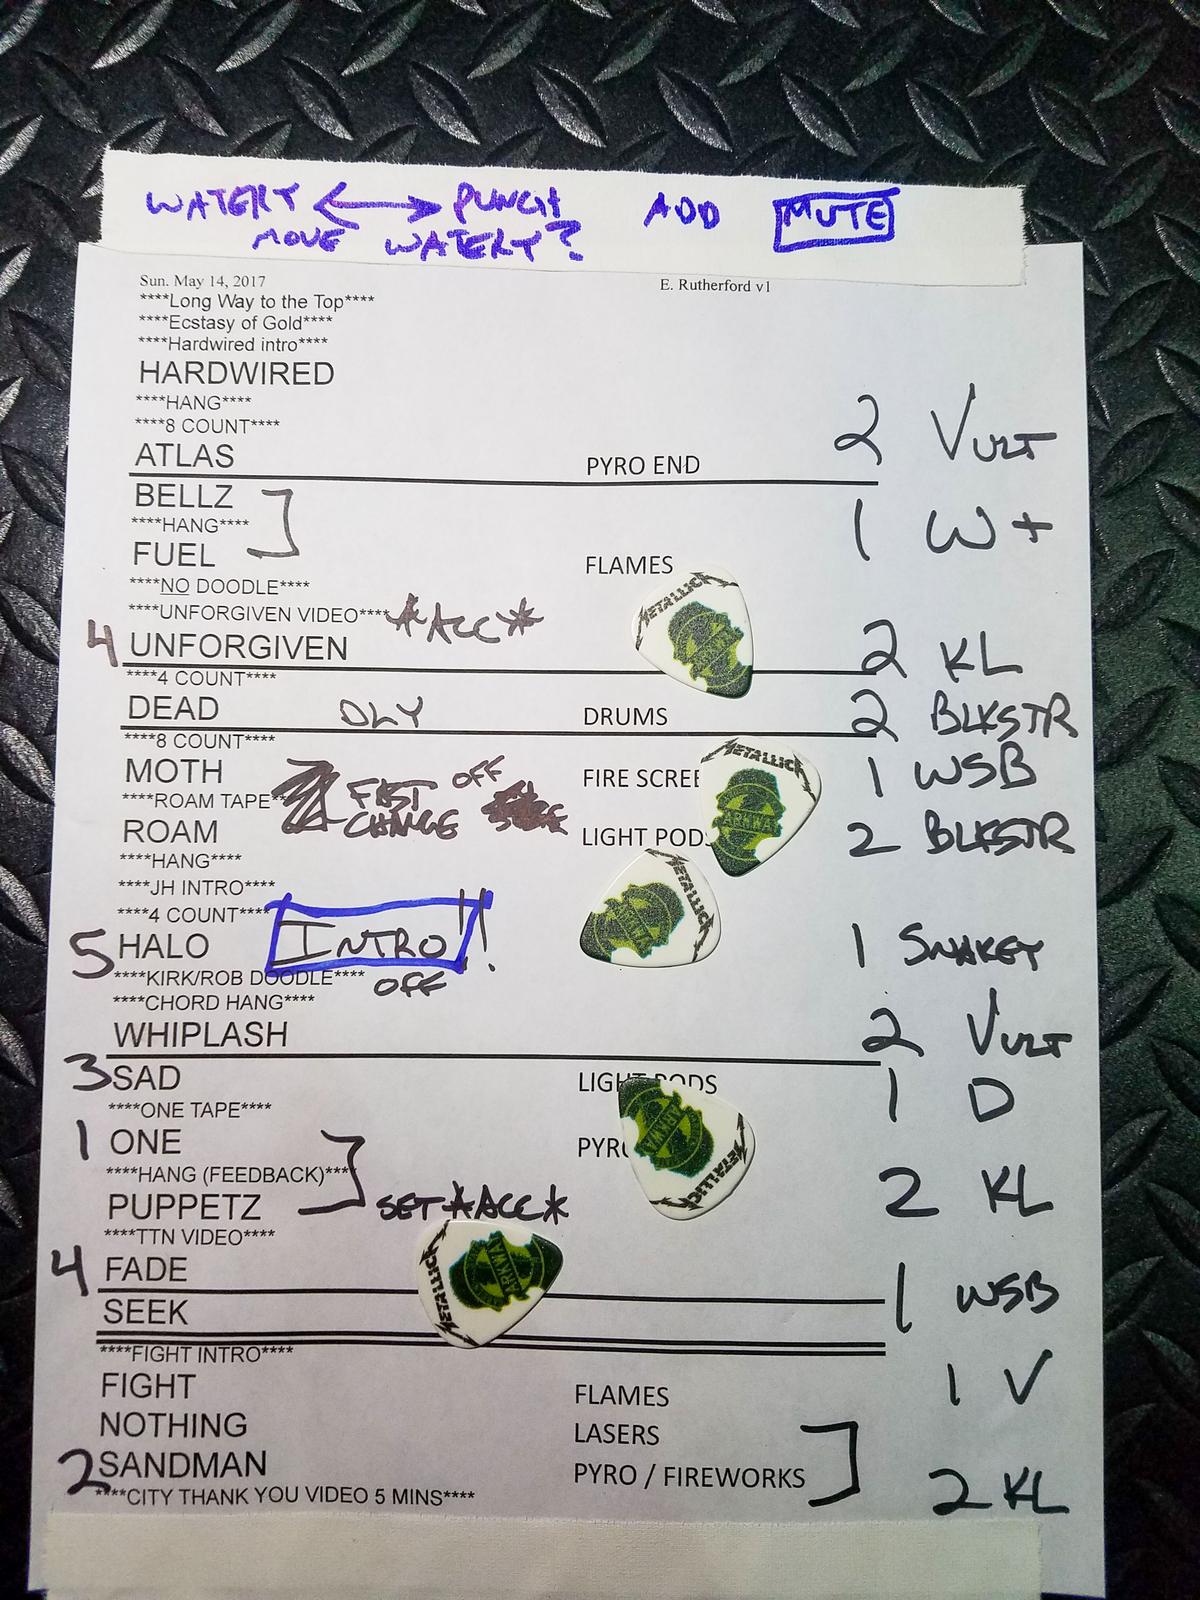 WATERY ↔ PUNCH ADD MUTE
MOVE WATERY?
Sun. May 14, 2017 E. Rutherford v1
****Long Way to the Top****
****Ecstasy of Gold****
****Hardwired intro****
HARDWIRED
****HANG****
****8 COUNT****
ATLAS PYRO END 2 VULT
BELLZ
****HANG**** 1 W+
FUEL FLAMES
****NO DOODLE****
****UNFORGIVEN VIDEO**** *ACC*
4 UNFORGIVEN 2 KL
****4 COUNT****
DEAD DLY DRUMS 2 BLKSTR
****8 COUNT****
MOTH OFF FIRE SCREE 1 WSB
****ROAM TAPE** FAST CHANGE
ROAM LIGHT PODS 2 BLKSTR
****HANG****
****JH INTRO****
****4 COUNT****
5 HALO INTRO!! 1 SNAKEY
****KIRK/ROB DOODLE**** OFF
****CHORD HANG****
WHIPLASH 2 VULT
3 SAD LIGHT PODS 1 D
****ONE TAPE****
1 ONE PYRO
****HANG (FEEDBACK)****
PUPPETZ SET *ACC* 2 KL
****TTN VIDEO****
4 FADE 1 WSB
SEEK
****FIGHT INTRO****
FIGHT FLAMES 1 V
NOTHING LASERS
2 SANDMAN PYRO / FIREWORKS 2 KL
****CITY THANK YOU VIDEO 5 MINS****
METALLICA
METALLICA
ARKWA
METALLICA
ARKWA
METALLICA
ARKWA
METALLICA